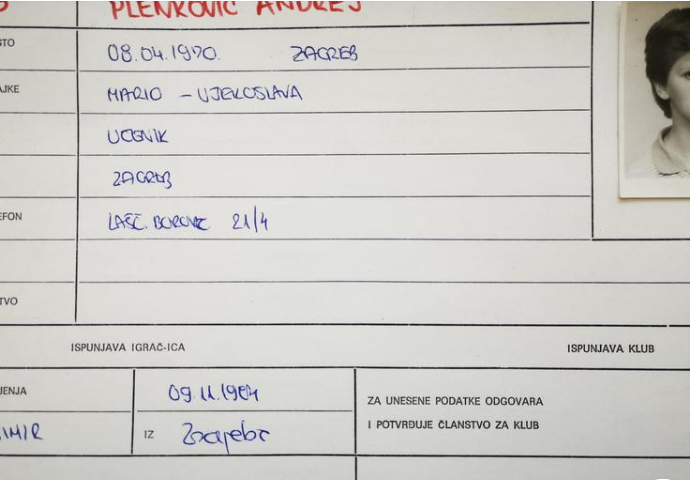 PLENKOVIĆ ANDREJ
STO
08.04.1970. ZAGREB
AJKE
MARIO - VJEKOSLAVA
UČENIK
ZAGREB
EFON
LAŠĆ. BOROVIC 21/4
TVO
ISPUNJAVA IGRAČ-ICA
ISPUNJAVA KLUB
JENJA
09.11.1984
ZA UNESENE PODATKE ODGOVARA
IMIR
IZ Zagreba
I POTVRĐUJE ČLANSTVO ZA KLUB